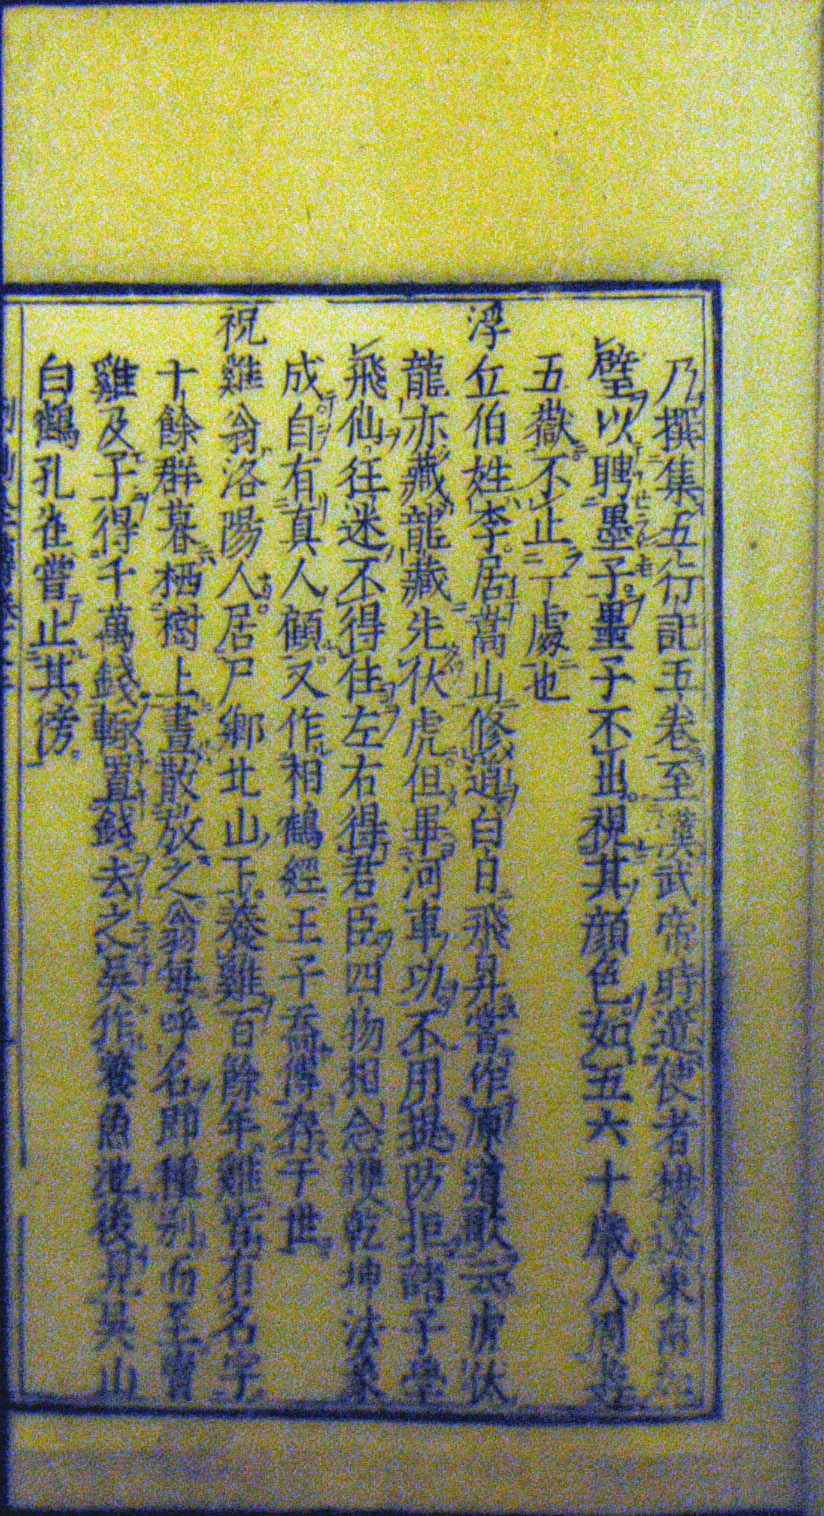 乃撰集五行記五卷至漢武帝時遣使者揚遼束帛加
璧以聘墨子墨子不出視其顔色如五六十歲人周遊
五嶽不止一處也
浮丘伯姓李居嵩山修道白日飛昇嘗作原道歌云虎伏
龍亦藏龍藏先伏虎但畢河車功不用提防拒諸子學
飛仙狂迷不得住左右得君臣四物相念護乾坤法象
成自有真人顧又作相鶴經王子喬傳存于世
祝雞翁洛陽人居尸鄉北山下養雞百餘年雞皆有名字
十餘群暮栖樹上晝散放之翁每呼名即種別而至賣
雞及子得千萬錢輙置錢去之吳作養魚池後見吳山
白鶴孔雀嘗止其傍